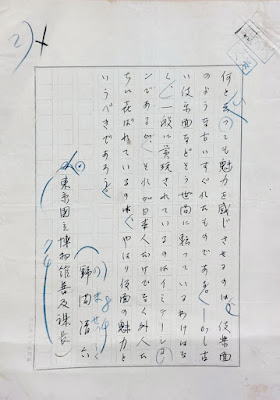 何と云つても魅力を感じさせるのは、伎楽面
のような古いすぐれたものである。しかし古
い伎楽面などそう世間に転つているわけはな
く、一般に賞玩されているのはイミテーショ
ンであるが、それが日本人だけでなく外人た
ちに喜ばれているのは、やはり仮面の魅力と
いうべきであろう。
野間清六
(東京国立博物館普及課長)